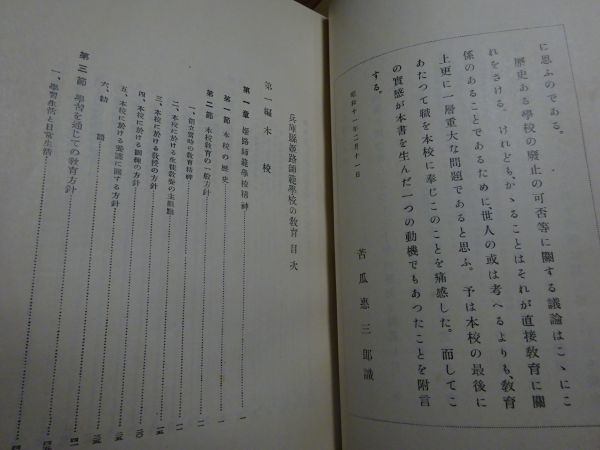 に思ふのである。
歷史ある學校の廢止の可否等に關する議論はこゝにこ
れをさける。けれども、かゝることはそれが直接敎育に關
係のあることであるために、世人の或は考へるよりも、敎育
上更に一層重大な問題であると思ふ。予は本校の最後に
あたつて職を本校に奉じこのことを痛感した。而してこ
の實感が本書を生んだ一つの動機でもあつたことを附言
する。
昭和十一年二月十一日
苦瓜惠三郎識
兵庫縣姬路師範學校の敎育 目次
第一編 本校
第一章 姬路師範學校精神
第一節 本校の歷史 一
第二節 本校敎育の一般方針
一、創立當時の敎育精神
二、本校に於ける生徒敎養の主眼點
三、本校に於ける敎授の方針
四、本校に於ける訓練の方針
五、本校に於ける養護に關する方針
六、結語
第三節 學習を通じての敎育方針
一、學習生活と日常生活